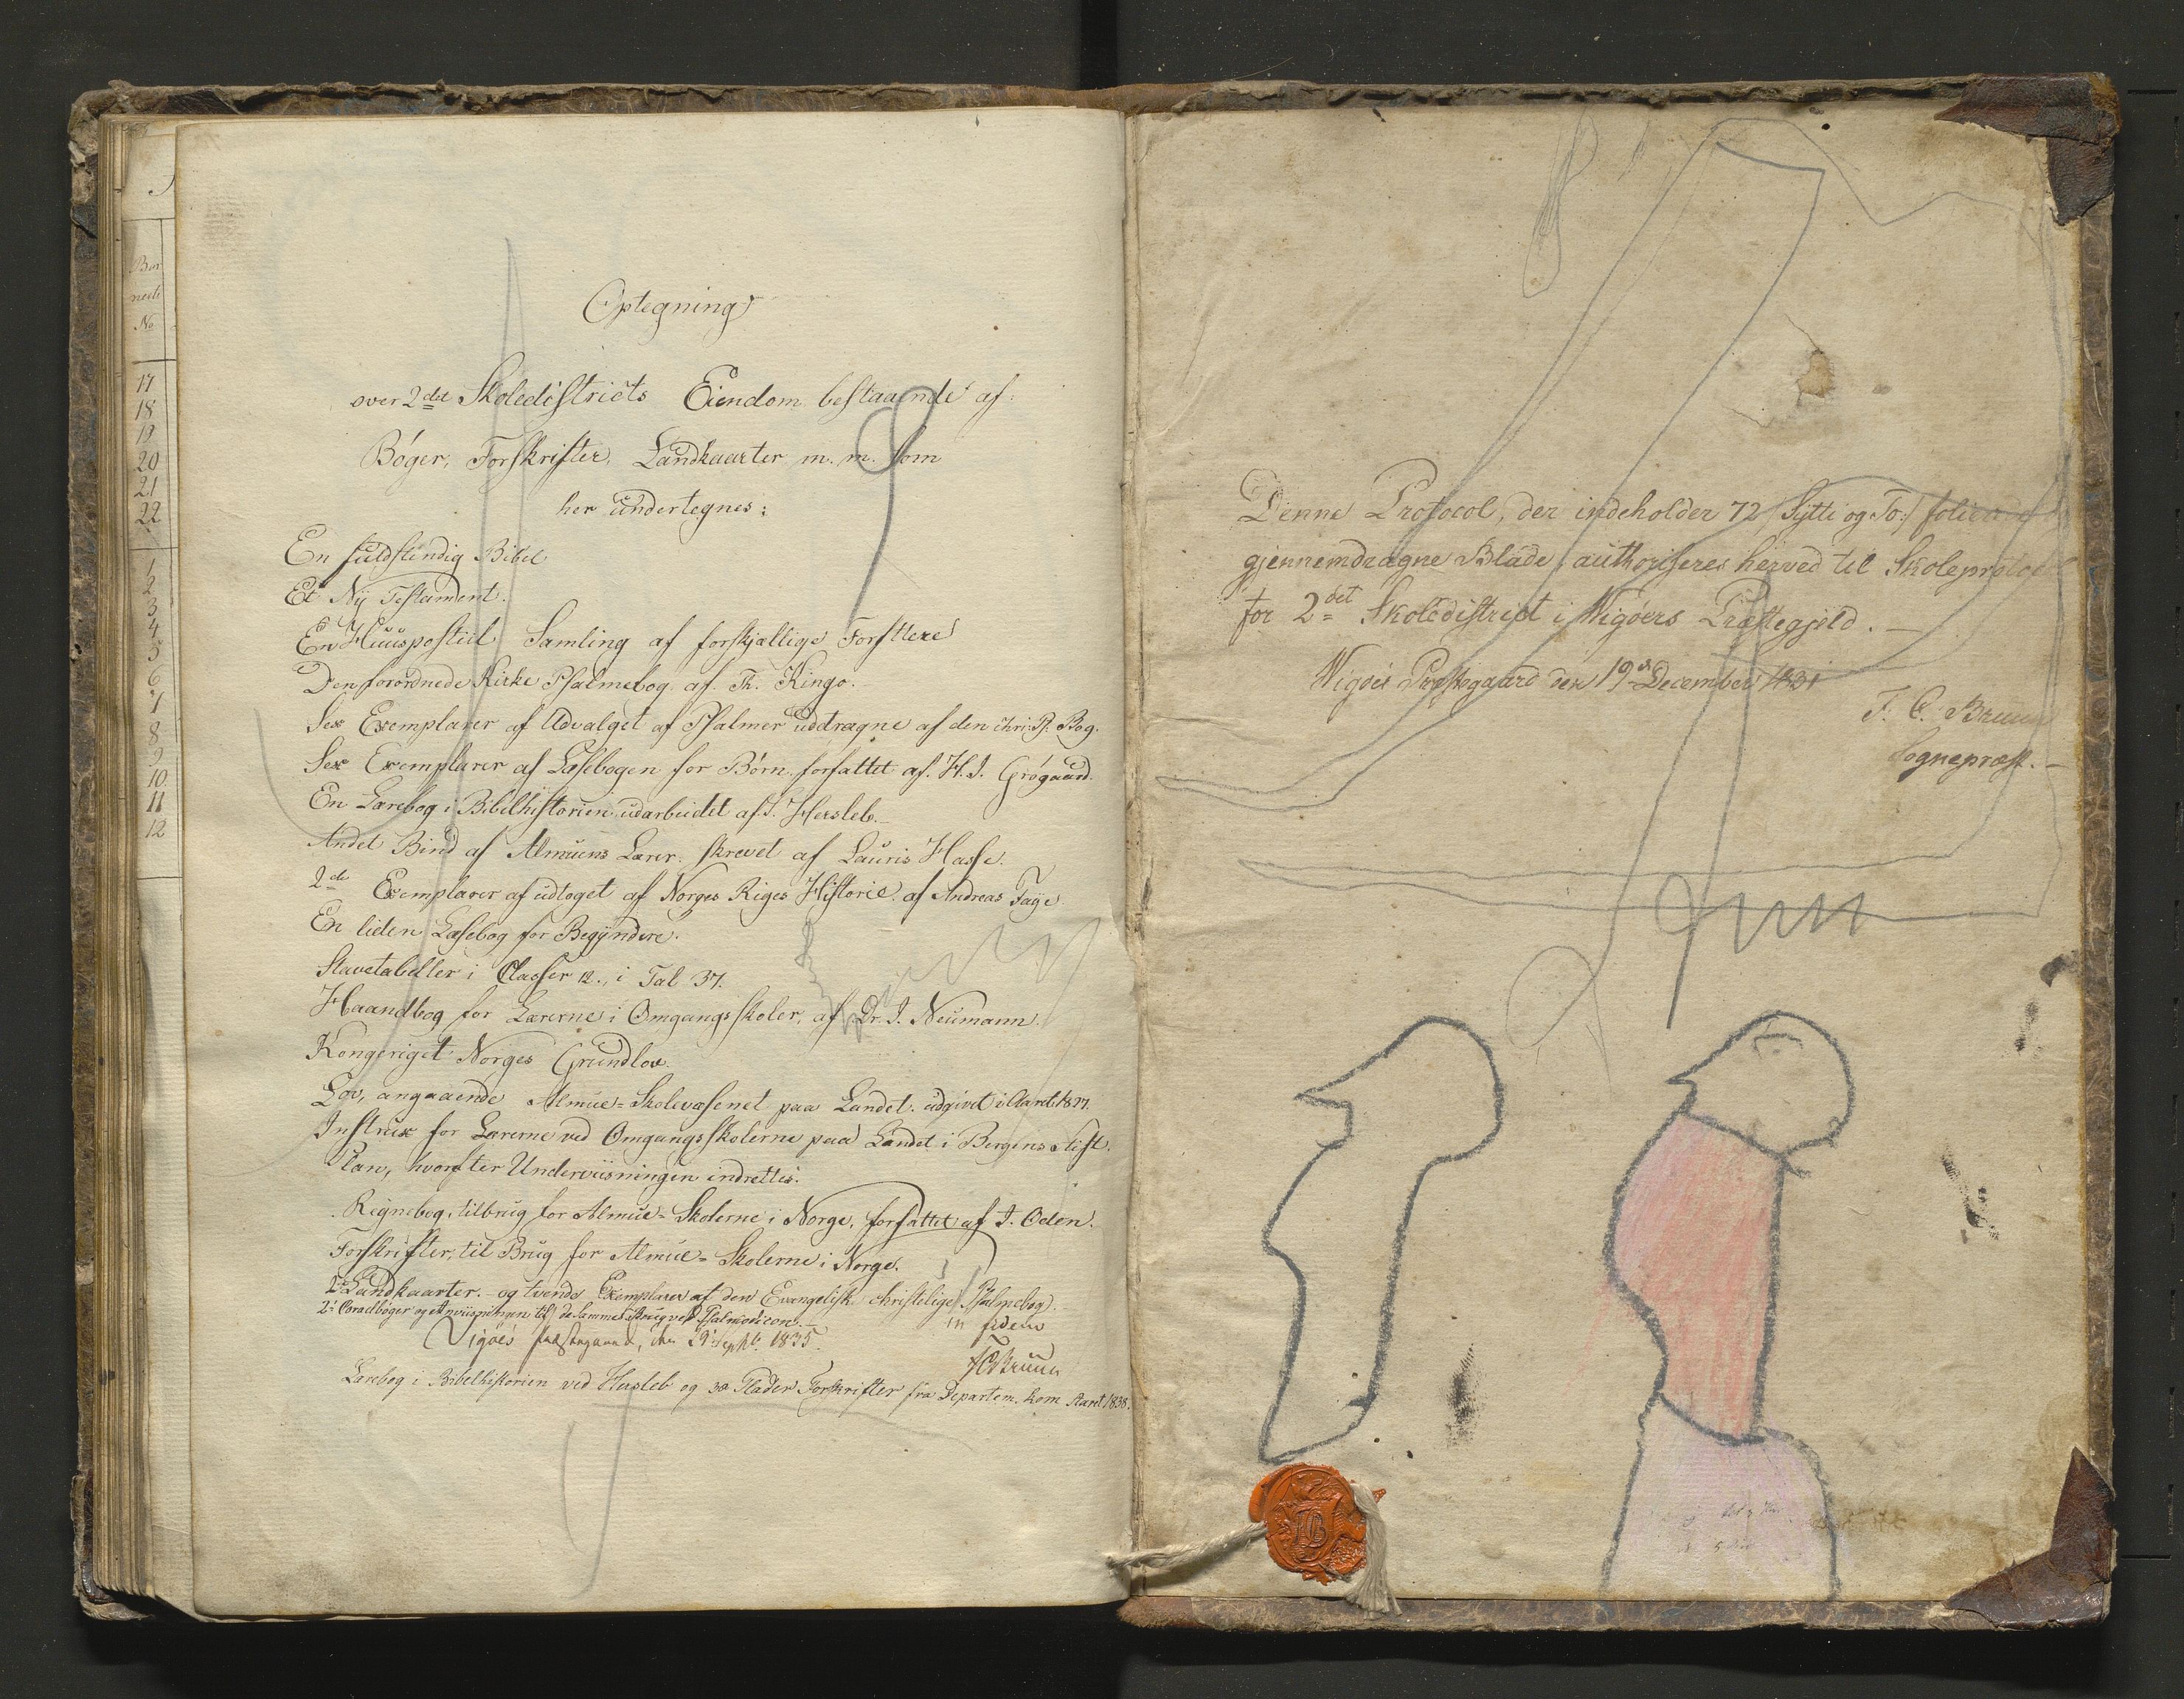 Bør
neds
No
17
18
19
20
21
22
1
2
3
4
5
6
7
8
9
10
11
12
Optegning
over 2det Skoledistricts Eiendom bestaaende af:
Bøger, Forskrifter, Landkaarter m. m. som
her undertegnes:
En fuldstendig Bibel
Et Nÿ Testament.
En Huuspostiil Samling af forskjællige Forfttere
Den forordnede Kirke Psalmebog af Th. Kingo.
Sex Exemplarer af Udvalget af Psalmer uddragne af den chri. Ps. Bog.
Sex Exemplarer af Læsebogen for Børn forfattet af H. J. Grøgaard.
En Lærebog i Bibelhistorien udarbeidet af S. Hersleb.
Andet Bind af Almuens Lærer skrevet af Lauris Hasse.
2de Exemplarer af udtoget af Norges Riges Historie af Andreas Faÿe
En liden Læsebog for Begÿndere.
Stavetabeller i Classer 12., i Tal 37.
Haandbog for Lærerne i Omgangsskoler, af Dr. J. Neumann.
Kongeriget Norges Grundlov.
Lov, angaaende Almue-Skolevæsenet paa Landet. udgivet i Aaret 1827.
Instrux for Lærerne ved Omgangsskolerne paa Landet i Bergens Stift.
Plan, hvorefter Underviisningen indrettes.
Regnebog, tilbrug for Almue-Skolerne i Norge, forfattet af J. Oden.
Forskrifter, til Brug for Almue-Skolerne i Norge.
2de Landkaarter. og tvende Exemplarer af den Evangelisk christelige Psalmebog.
2 Coralbøger og Anviisningen til desammes Brug ved Psalmodicon.
Vigøes Præstegaard, den 29 Septbr. 1835.
in fidem
FCBruun
Lærebog i Bibelhistorien ved Hersleb og 32 Flader Forskrifter fra Departem. kom Aaret 1838.
Denne Protocol, der indeholder 72 /:Sÿtti og To:/ folierede
gjennemdragne Blade, authoriseres herved til Skoleprotocol
for 2det Skoledistrict i Wigøers Præstegjeld.
Wigøes Præstegaard den 19de December 1831
F. C. Bruun
Sognepræst.
FCB